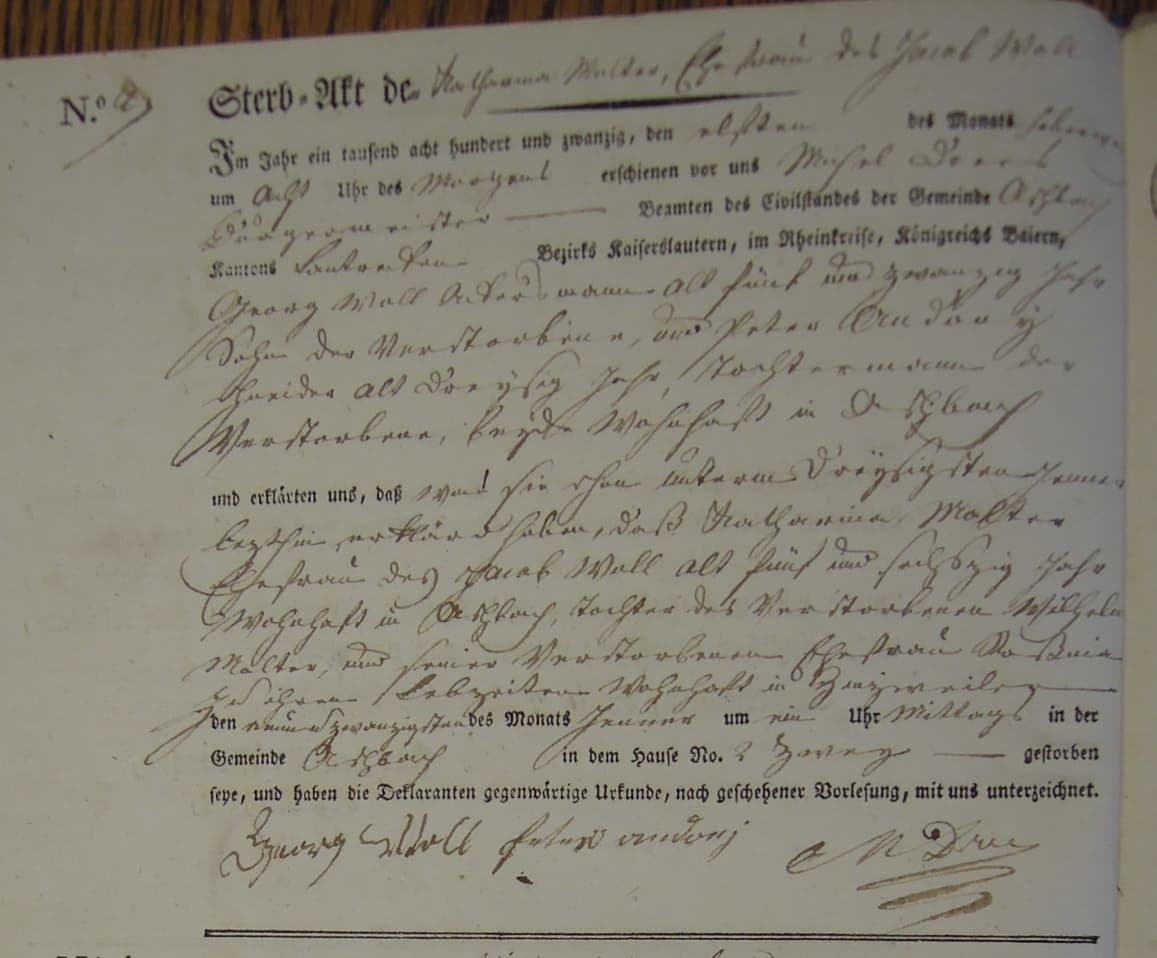 N.º 2
Sterb-Akt de Katharina Malter, Ehe frau des Jacob Woll
Im Jahr ein tausend acht hundert und zwanzig, den elften des Monats
um Acht Uhr des Morgens erschienen vor uns Michel
Bürgermeister Beamten des Civilstandes der Gemeinde Aschbach
Kantons Lautrecken Bezirks Kaiserslautern, im Rheinkreise, Königreichs Baiern,
Georg Woll Ackersmann alt fünf und zwanzig Jahr
Sohn der Verstorbene, und Peter Andory
alt Dreysig Jahr, Tochtermann der
Verstorbene, beyde Wohnhaft in Aschbach
und erklärten uns, daß was sie schon unterm Dreysigsten Jenner
letzthin erklärd haben, daß Katharina Malter
Ehefrau des Jacob Woll alt fünf und sechszig Jahr
Wohnhaft in Aschbach, Tochter des Verstorbenen Wilhelm
Malter, und seiner Verstorbenen Ehefrau
zu ihren Lebzeiten Wohnhaft in
den neun und zwanzigsten des Monats Jenner um ein Uhr Mittags in der
Gemeinde Aschbach in dem Hause No. 2 zwey gestorben
seye, und haben die Deklaranten gegenwärtige Urkunde, nach geschehener Vorlesung, mit uns unterzeichnet.
Georg Woll Peter andorj